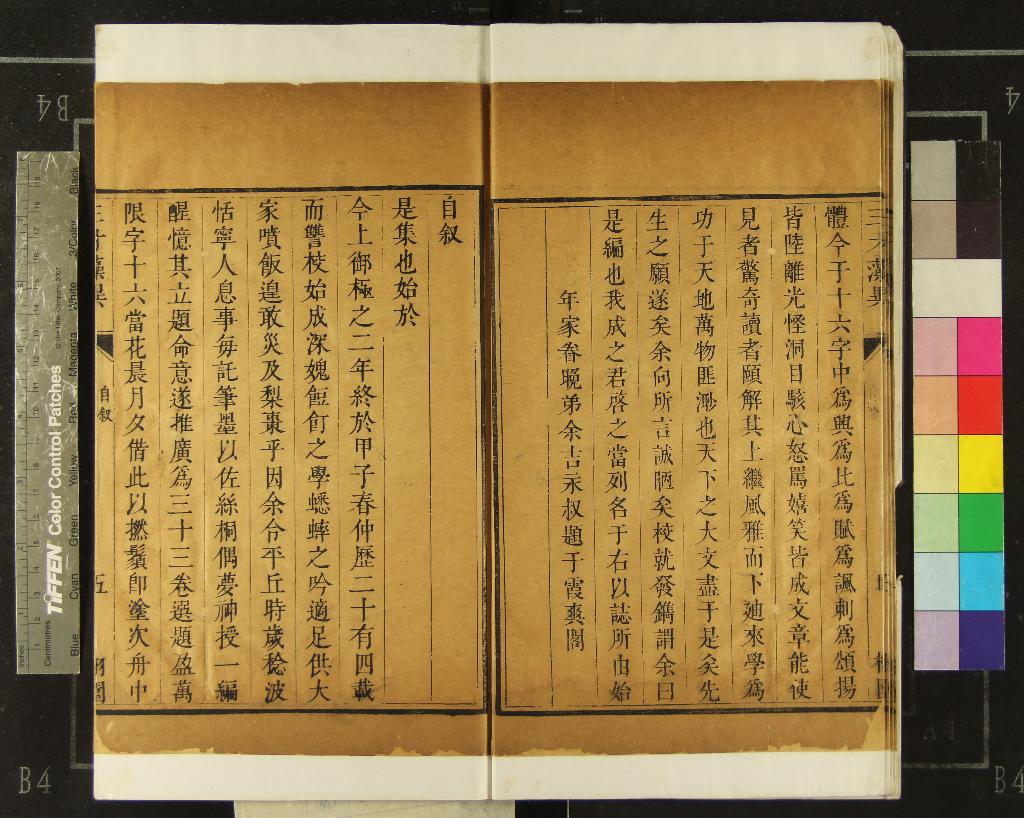 體今于十六字中爲興爲比爲賦爲諷刺爲頌揚
皆陸離光怪洞目駭心怒罵嬉笑皆成文章能使
見者驚奇讀者頤解其上繼風雅而下廸來學爲
功于天地萬物匪渺也天下之大文盡于是矣先
生之願遂矣余向所言誠陋矣校就發鐫謂余曰
是編也我成之君啓之當列名于右以誌所由始
年家眷晚弟余吉永叔題于霞爽閣
自叙
是集也始於
今上御極之二年終於甲子春仲歷二十有四載
而讐校始成深媿飣飣之學蟋蟀之吟適足供大
家噴飯遑敢災及梨棗乎因余令平丘時歲稔波
恬寧人息事每託筆墨以佐絲桐偶夢神授一編
醒憶其立題命意遂推廣爲三十三卷選題盈萬
限字十六當花晨月夕借此以撚鬚卽塗次舟中
三才藻異
自叙
五
栩園
B4
B4
B4
TIFFEN Color Control Patches
Centimetres
Inches
Blue
Cyan
Green
Yellow
Red
Magenta
White
3/Color
Black